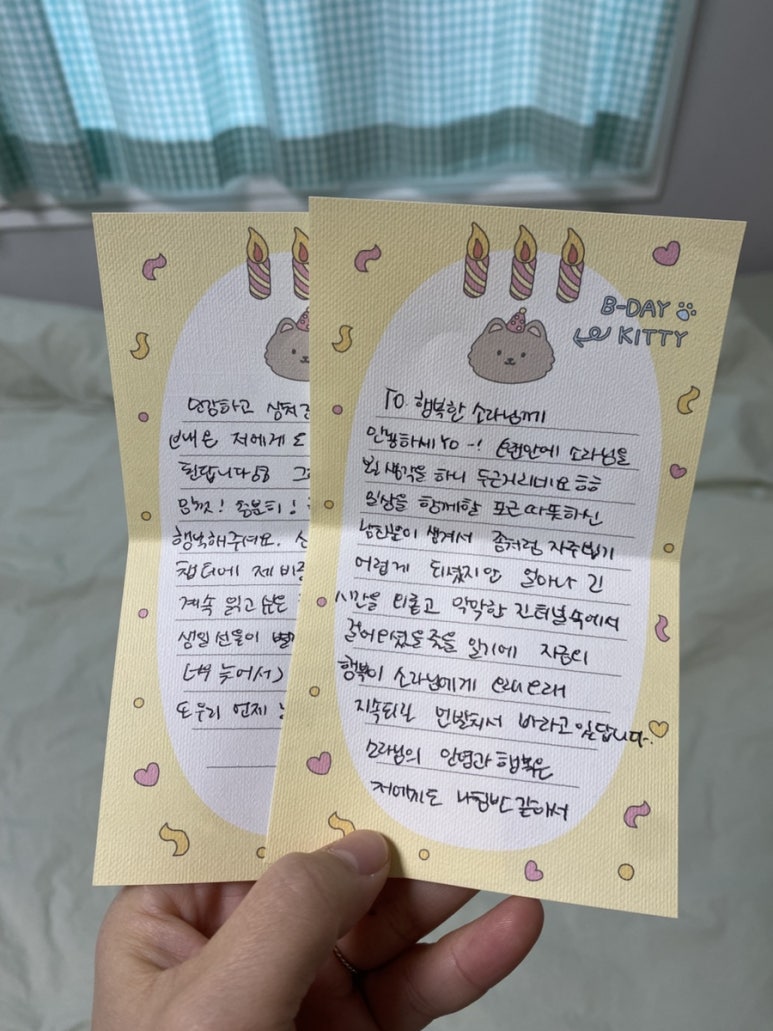 B-DAY
KITTY
TO 행복한 소라님께
안녕하세YO -! 오랜만에 소라님을
뵐 생각을 하니 두근거리네요 ㅎㅎ
일상을 함께할 포근 따뜻하신
남친분이 생겨서 좀처럼 자주 뵙기
어렵게 되셨지만 얼마나 긴
시간을 외롭고 막막한 긴 터널 속에서
걸어오셨을 줄을 알기에 지금의
행복이 소라님에게 오래오래
지속되길 바라고 있답니다.
소라님의 안녕과 행복은
저에게도 나침반 같아서
하고
저에게
된답니다
행복해주셔요.
챕터에 제 비중
계속 읽고 싶은
생일 선물이
늦어서)
언제